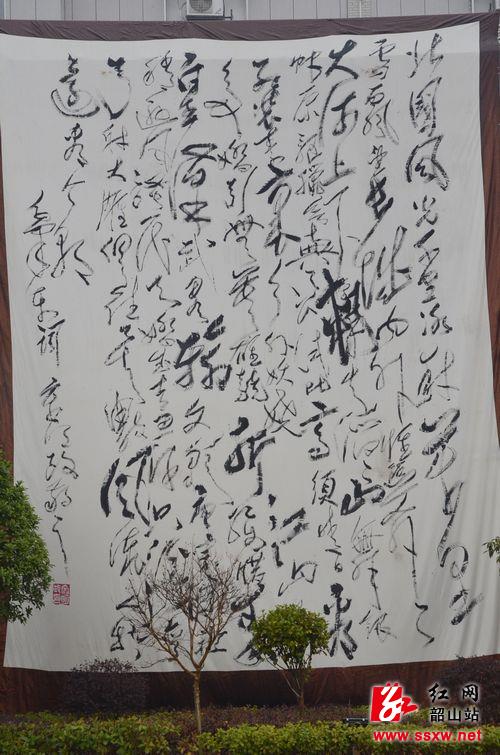 北國風光千里冰封万里
雪飘望长城内外惟余莽
大河上下顿失滔滔山舞银
原驰蜡象欲与天公试比高须晴日看
红装素裹分外妖娆江山
多娇引无数英雄竞折腰惜
秦皇汉武略输文采唐宗
稍逊风骚一代天骄成吉思汗只识弯
弓射大雕俱往矣数風流人物
还看今朝
毛泽东词
红网
韶山站
www.ssxw.net